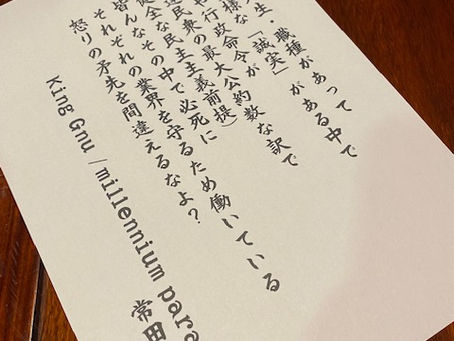 生・職種があって
様な「誠実」がある中で
行政命令が
民衆の最大公約数な訳で
全な民主主義前提)
皆んなその中で必死に
それぞれの業界を守るため働いている
怒りの矛先を間違えるなよ？
King Gnu / millennium para 常田